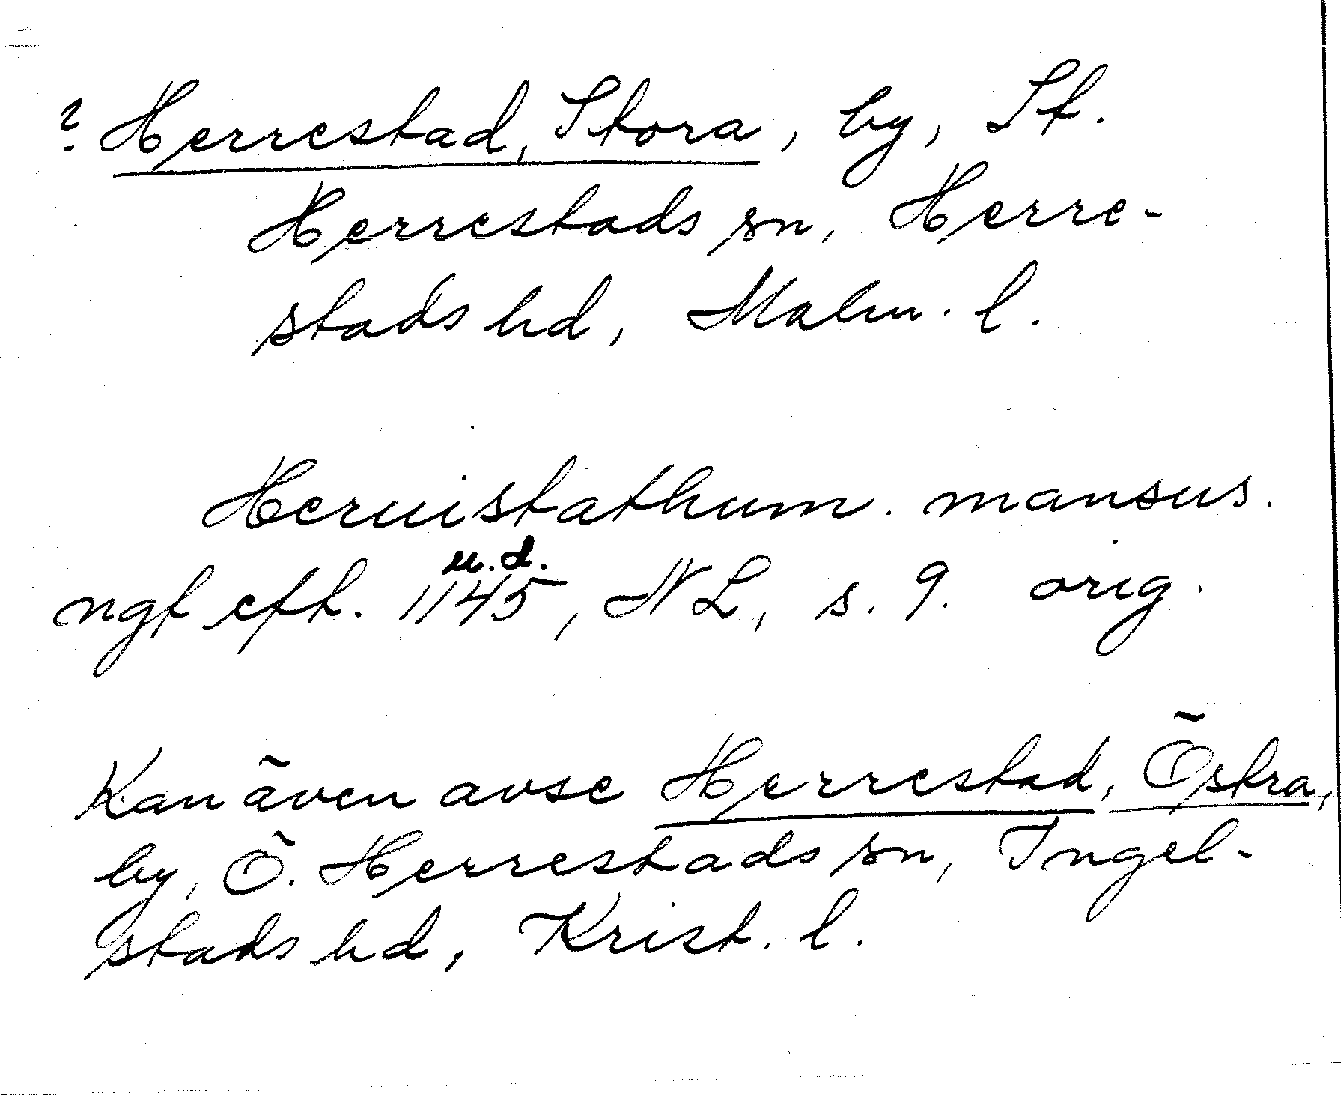 ? Herrestad, Stora, by, St.
Herrestads sn, Herre-
stads hd, Malm. l.
Heruistathum. mansus.
u.d.
ngt eft. 1145, NL, s. 9. orig.
Kan även avse Herrestad, Östra,
by, Ö. Herrestads sn, Ingel-
stads hd, Krist. l.